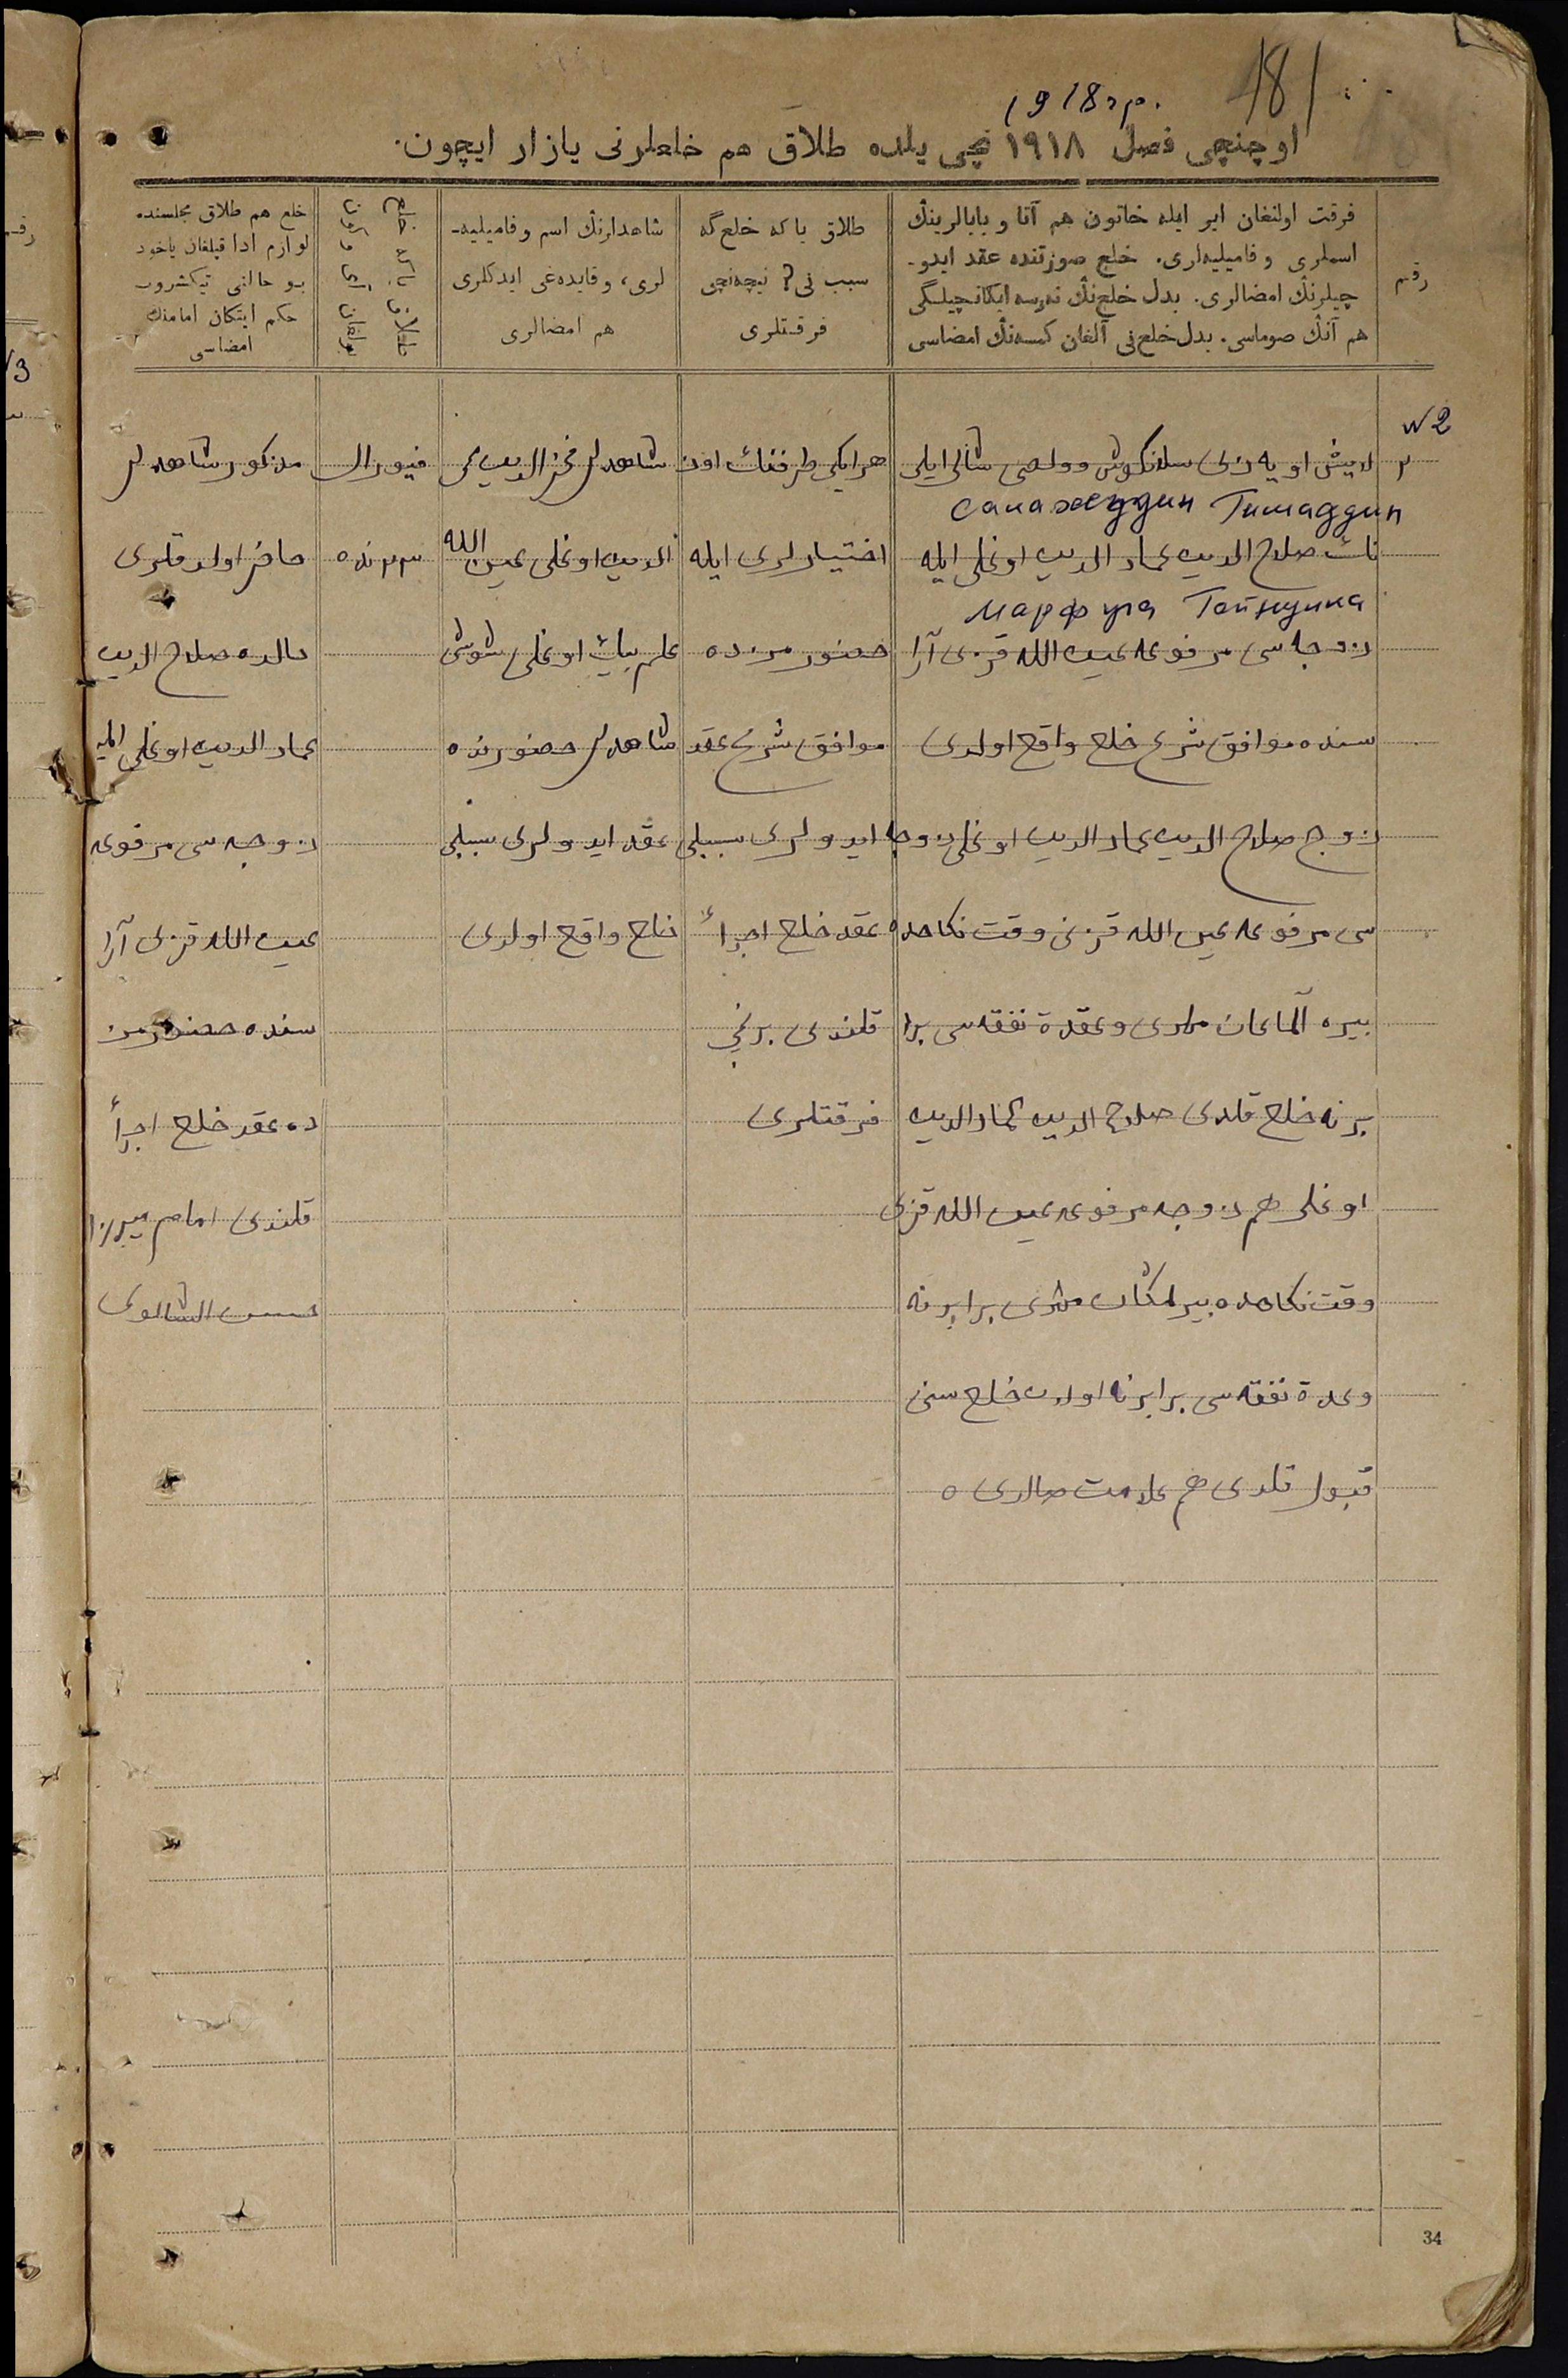 1918 гр.
181
اوچنچی فصل ۱۹۱۸ نچی یلده طلاق هم خلعلرنی یازار ایچون.
رقم
فرقت اولنغان ایر ایله خاتون هم آتا و بابالرینڭ
اسملری و فامیلیه‌لری. خلع صورتنده عقد ایدو-
چیلرنڭ امضالری. بدل خلع‌نڭ نه‌رسه ایکانچیلگی
هم آنڭ صوماسی. بدل خلع‌نی آلغان کمسه‌نڭ امضاسی
طلاق یا که خلع گه
سبب نی؟ نیچه‌نچی
فرقتلری
شاهدلرنڭ اسم و فامیلیه-
لری، و قایده‌غی ایدکلری
هم امضالری
طلاق یا که خلع
بولغان آی و کون
خلع هم طلاق مجلسنده
لوازم ادا قیلغان یاخود
بو حالنی تیکشروب
حکم ایتکان امامنڭ
امضاسی
№ 2
۲
شالی ایلی
Салахуддин Гимаддин
صلاح الدین عماد الدین اوغلی ایله
Марфуга Гайнулина
زوجه سی مرفوعه عین الله قزی آرا
سنده موافق شرع خلع واقع اولدی
زوج صلاح الدین عماد الدین اوغلی زوجه
سی مرفوعه عین الله قزنی وقت نکاحده
بیره آلماغان مهری و عدة نفقه سی برا
برنه خلع قلدی صلاح الدین عماد الدین
اوغلی هم زوجه مرفوعه عین الله قزی
وقت نکاحده بیرلمکان مهری برابرنه
وعدة نفقه سی برابرنه اولان خلع سنی
قبول قلدی هم علامت صالدی ه
هر ایکی طرفنڭ اوز
اختیارلری ایله
حضورمزده
موافق شرع عقد
ایدولری سببلی
عقد خلع اجرأ
قلندی برنجی
فرقتلری
شاهدلر فخر الدین
الدین اوغلی عین الله
اوغلی
شاهدلر حضورنده
عقد ایدولری سببلی
خلع واقع اولدی
فیورال
۲۳ نده
مذکور شاهدلر
حاضر اولدقلری
حالده صلاح الدین
عماد الدین اوغلی ایله
زوجه سی مرفوعه
عین الله قزی آرا
سنده حضورمز
ده عقد خلع اجرأ
قلندی امام میرزا
34